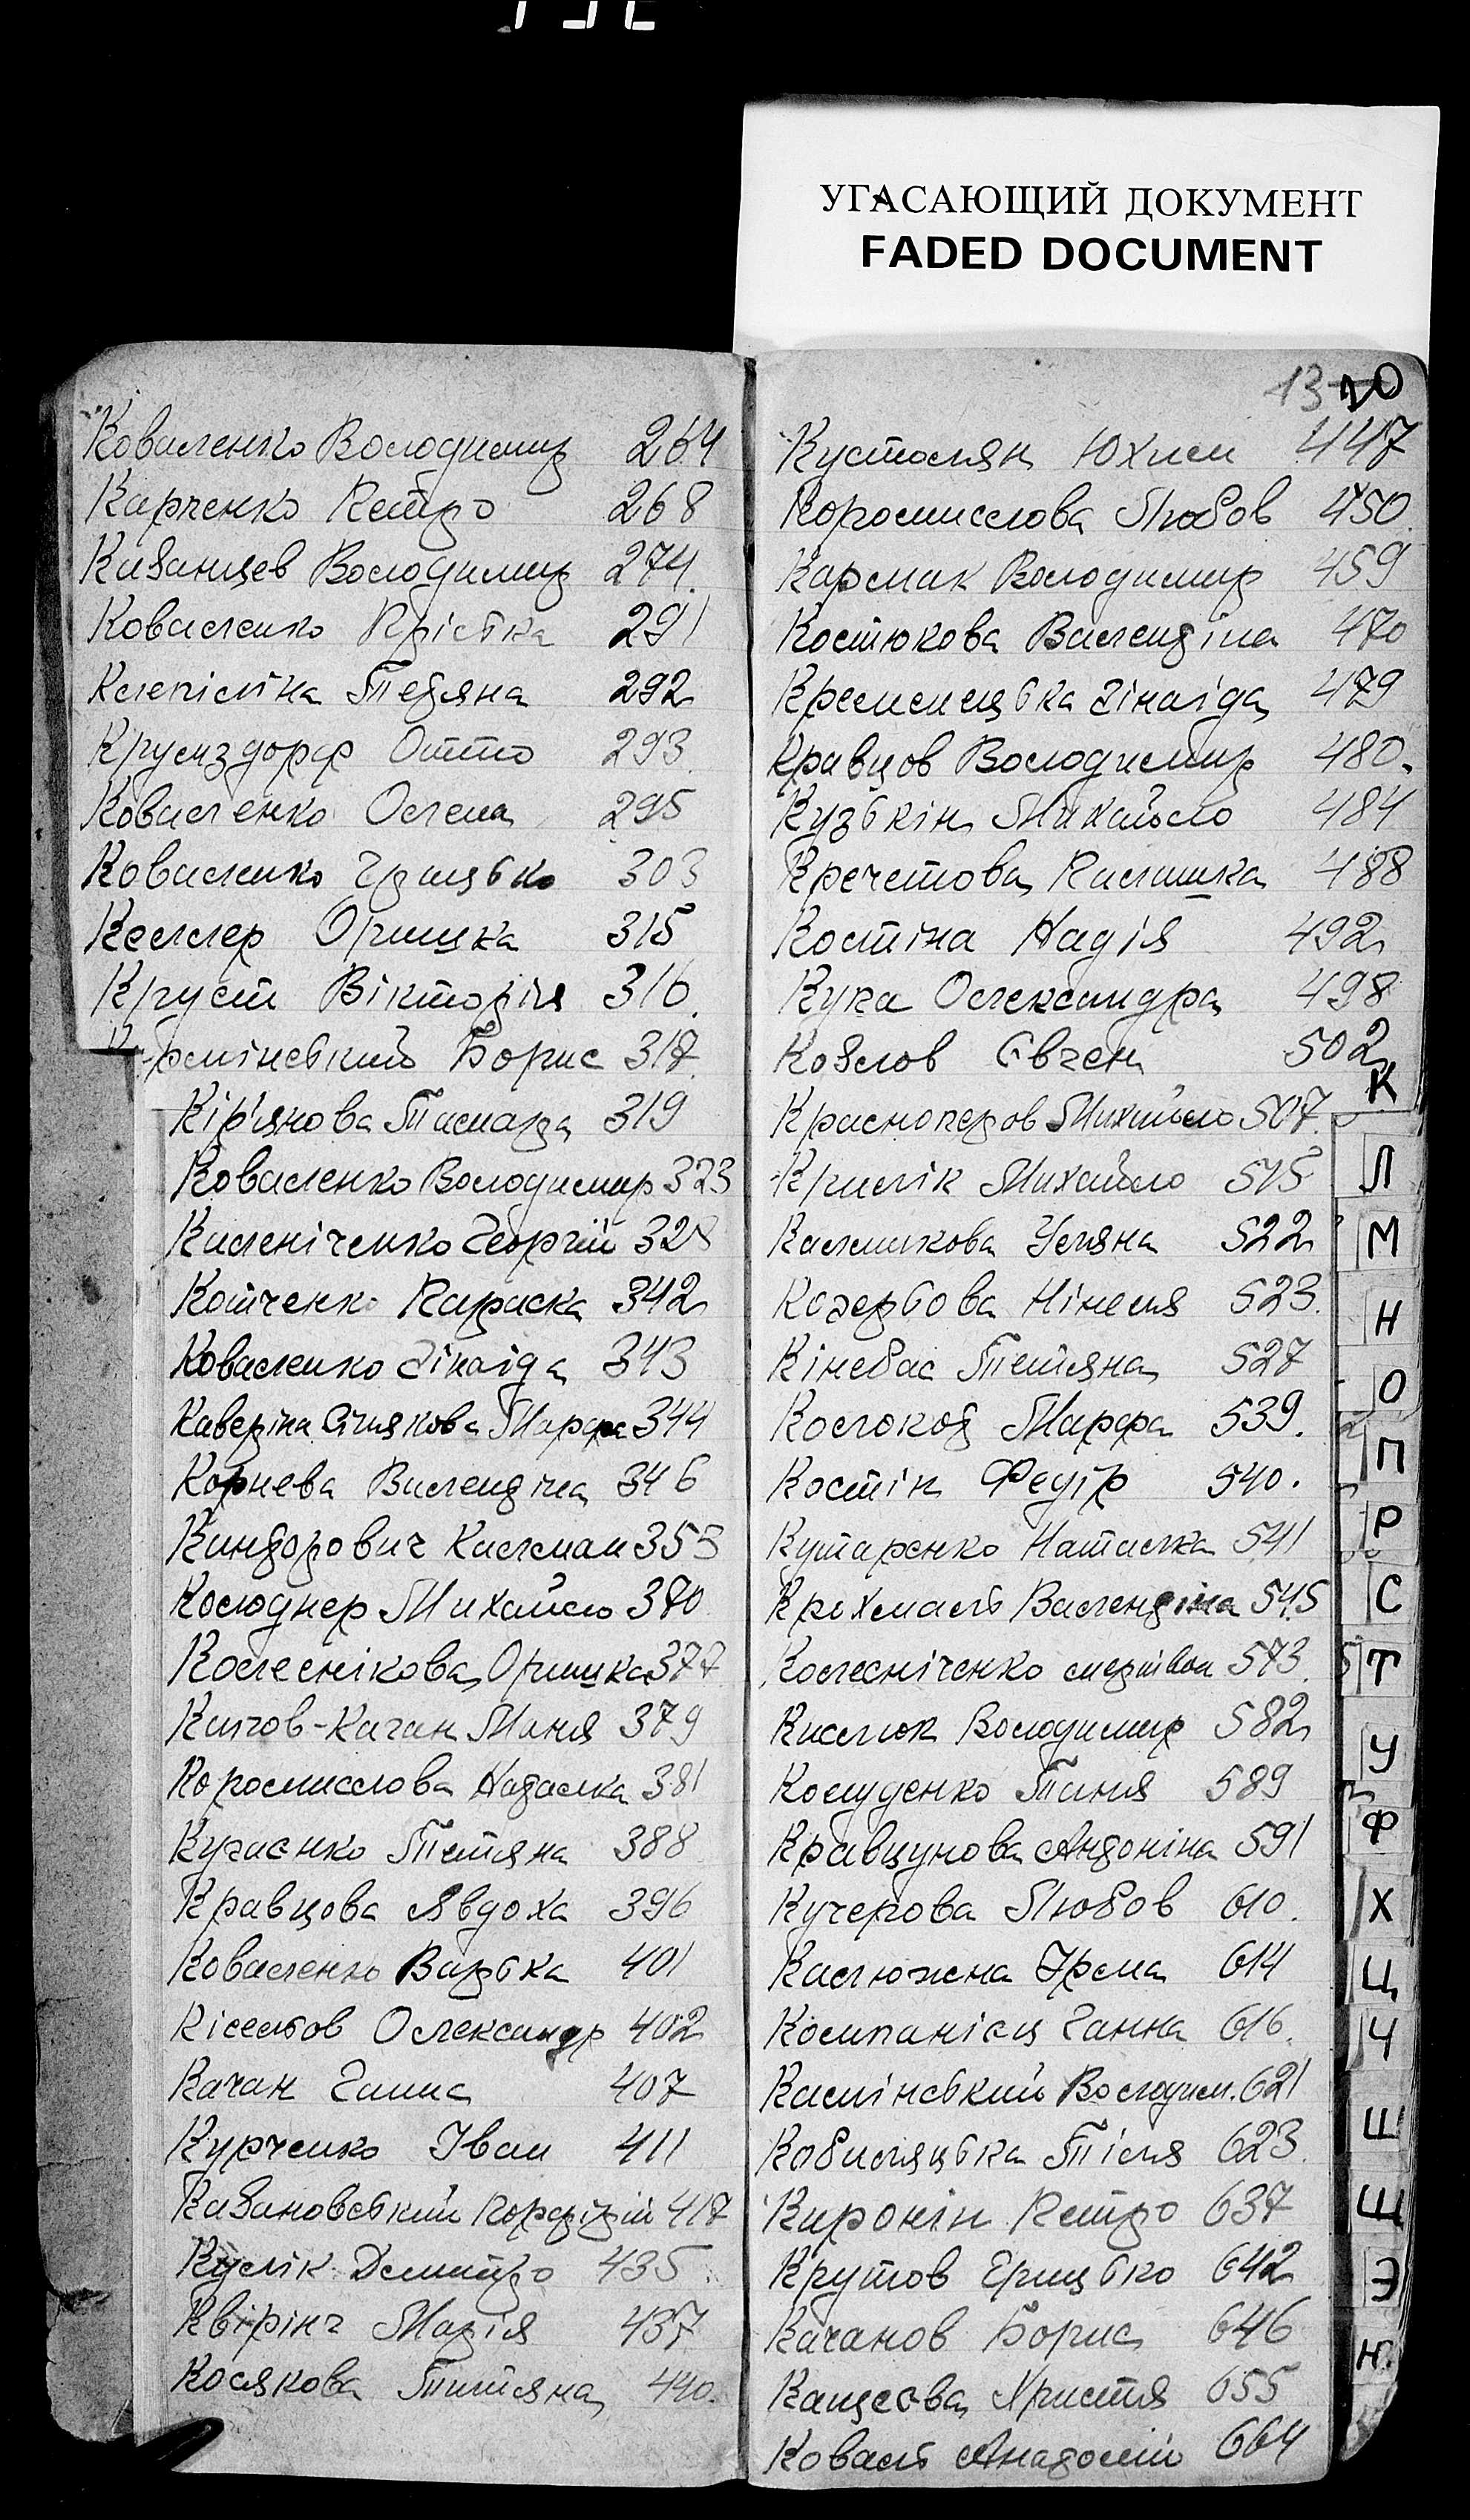 УГАСАЮЩИЙ ДОКУМЕНТ
FADED DOCUMENT
Коваленко Володимир 264
Карченко Петро 268
Казанцев Володимир 274.
Коваленко Пріська 291
Клепіліна Тетяна 292
Крумздорф Отто 293
Коваленко Олена 295
Коваленко Грицько 303
Келлер Оришка 315
Круст Вікторія 316.
Борис 317.
Кір'янова Тамара 319
Коваленко Володимир 323
Калениченко Георгій 328
Котченко Параска 342
Коваленко Зінаїда 343
Каверіна Марфа 344
Корнева Валентіна 346
Кандорович Калман 353
Колюднер Михайло 370
Колеснікова Оришка 377
Качан Маня 379
Коромислова Наталка 381
Кучаєнко Тетяна 388
Кравцова Явдоха 396
Коваленко Варька 401
Кісельов Олександр 402
Качан Ганна 407
Курченко Іван 411
Казановський Порфірій 417
Кулік Дмитро 435
Квірінг Марія 437
Косякова Тетяна 440.
13 20
Кустолян Юхим 447
Коромислова Любов 450.
Кармак Володимир 459
Костюкова Валентіна 470
Кременецька Зінаїда 479
Кравцов Володимир 480.
Кузькін Михайло 484
Кречетова Палашка 488
Костіна Надія 492
Кука Олександра 498
Козлов Євген 502
Красноперов Михайло 507.
Крилік Михайло 515
Калмикова Уляна 522
Козерьова Нінеля 523.
Кінебас Тетяна 527
Колокоз Марфа 539.
Костін Федір 540.
Кутаренко Наталка 541
Крохмаль Валентіна 545
Колесніченко 573.
Киселюк Володимир 582
Комуденко Таня 589
Кравцунова Антоніна 591
Кучерова Любов 610.
Калюжна Ірма 614
Компанієць Ганна 616.
Камінський Володим. 621
Кобиляцька Тіля 623.
Киронін Петро 637
Крутов Грицько 642
Качанов Борис 646
Кащеєва Христя 655
Коваль Анатолій 664
К
Л
М
Н
О
П
Р
С
Т
У
Ф
Х
Ц
Ч
Ш
Щ
Э